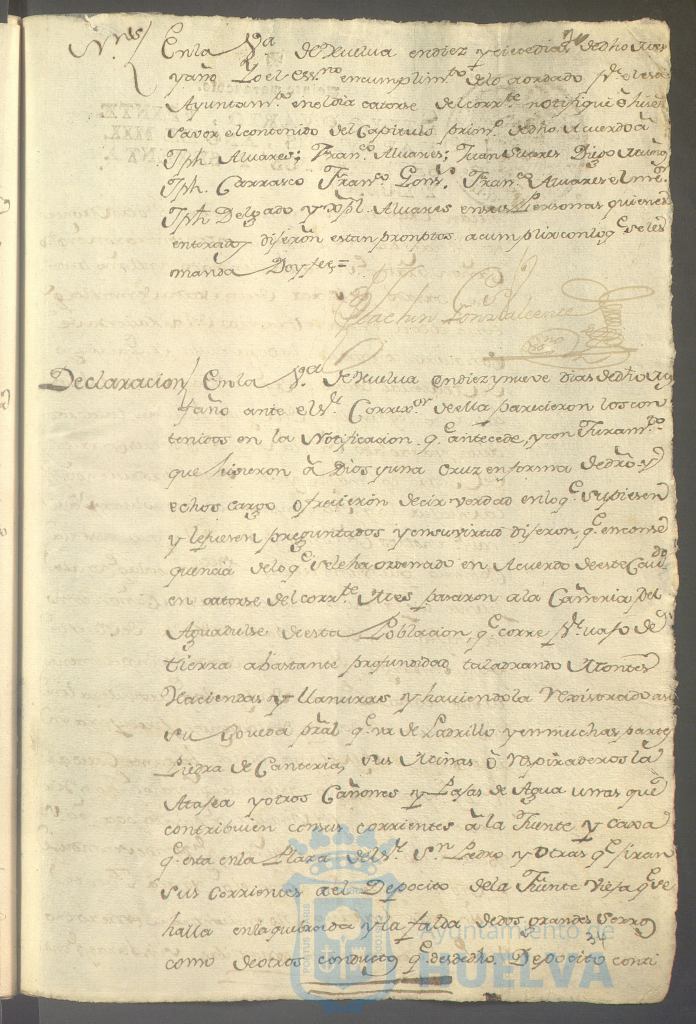 En la Va. de Huelva en diez y siete dias de dho mes
y año Yo el essno. en cumplimto. de lo acordado pr. este
Ayuntamto. en el dia catorse del corrte. notifique è hise
saver el contenido del Capitulo primo. de dho Acuerdo à
Jph. Alvares; Franco. Alvares; Juan Suares Diego
Jph. Carrasco Franco. Gons. Franco. Alvares el mr.
Jph Delgado y Xptl. Alvares en sus Personas quienes
enterados dijeron estan promptos a cumplir con lo q. se les
manda Doy fee =
Declaracion En la Va. de Huelva en diez y nueve dias de dho mes
y año ante el Sr. Correxor. de ella parecieron los con
tenidos en la Notificacion q. antecede, y con Juramto.
que hisieron à Dios y una Cruz en forma de dro. y
echos cargo ofrecieron decir verdad en lo q. supiesen
y les fueren preguntados y en su virtud dijeron q. en conse
quencia de lo q. se les ha ordenado en Acuerdo de este Cavdo.
en catorse del corrte. Mes pasaron a la Cañeria del
Agua dulse de esta Poblacion, q. corre pr. vajo de
tierra a bastante profundidad taladrando Montes
Haciendas y llanuras y haviendola rexistrado
su Boveda pral q. es de Ladrillo y en muchas partes
Piedra de Canteria, sus Minas ô Respiraderos la
Atajea y otros Cañones y Lajas de Agua unas que
contribuien con sus corrientes à la Fuente y Caxa
q. esta en la Plaza del Sr. Sn. Pedro y otras q. jiran
sus corrientes a el Deposito de la Fuente Vieja q. se
halla en la quebrada y la falda de dos grandes Serros
como de otros conductos q. desde dho Deposito conti
34
Ayuntamiento de
HUELVA